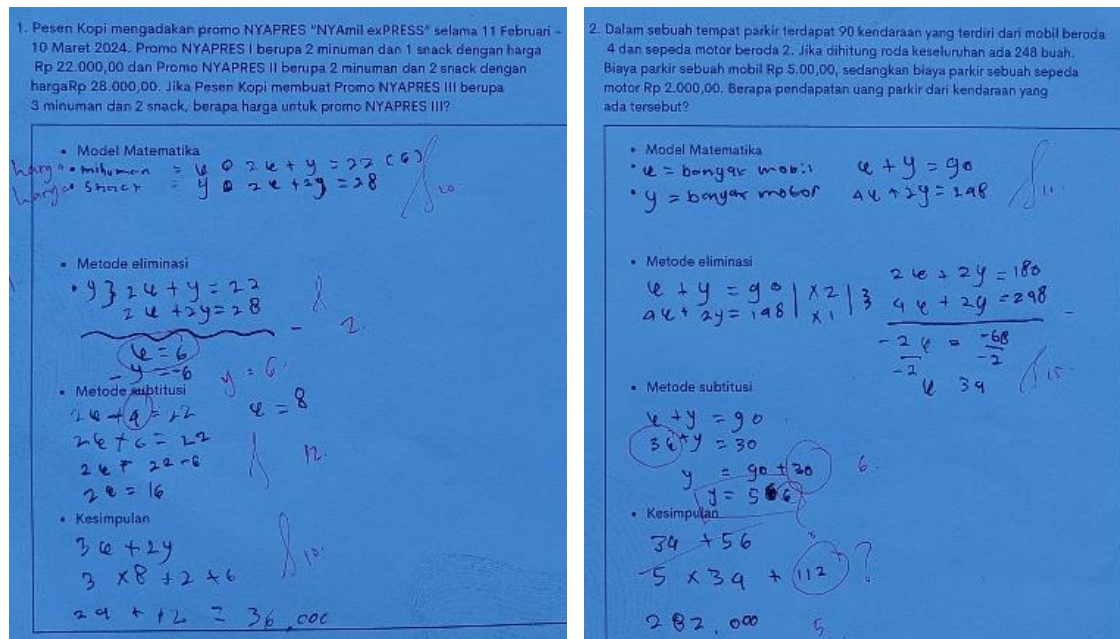 1. Pesen Kopi mengadakan promo NYAPRES "NYAmil exPRESS" selama 11 Februari -
10 Maret 2024. Promo NYAPRES I berupa 2 minuman dan 1 snack dengan harga
Rp 22.000,00 dan Promo NYAPRES II berupa 2 minuman dan 2 snack dengan
hargaRp 28.000,00. Jika Pesen Kopi membuat Promo NYAPRES III berupa
3 minuman dan 2 snack, berapa harga untuk promo NYAPRES III?
• Model Matematika
harga minuman = x 2x + y = 22
harga snack = y 2x + 2y = 28
20
• Metode eliminasi
• y } 2x + y = 22
2x + 2y = 28 -
2.
x = 6
- y = -6
y = 6
• Metode subtitusi
x = 8
2x + 6 = 22
2x = 22 - 6
2x = 16
12.
• Kesimpulan
3x + 2y
3 x 8 + 2 x 6
24 + 12 = 36.000
10.
2. Dalam sebuah tempat parkir terdapat 90 kendaraan yang terdiri dari mobil beroda
4 dan sepeda motor beroda 2. Jika dihitung roda keseluruhan ada 248 buah.
Biaya parkir sebuah mobil Rp 5.00,00, sedangkan biaya parkir sebuah sepeda
motor Rp 2.000,00. Berapa pendapatan uang parkir dari kendaraan yang
ada tersebut?
• Model Matematika
• x = banyak mobil x + y = 90
• y = banyak motor 4x + 2y = 248
• Metode eliminasi
x + y = 90 | x2 | 2x + 2y = 180
4x + 2y = 248 | x1 | 4x + 2y = 248 -
-2x = -68
-2 -2
x 34
15.
• Metode subtitusi
x + y = 90
34 + y = 90
y = 90 + 30
y = 56
6.
• Kesimpulan
34 + 56
5 x 34 + 112 ?
282.000
5